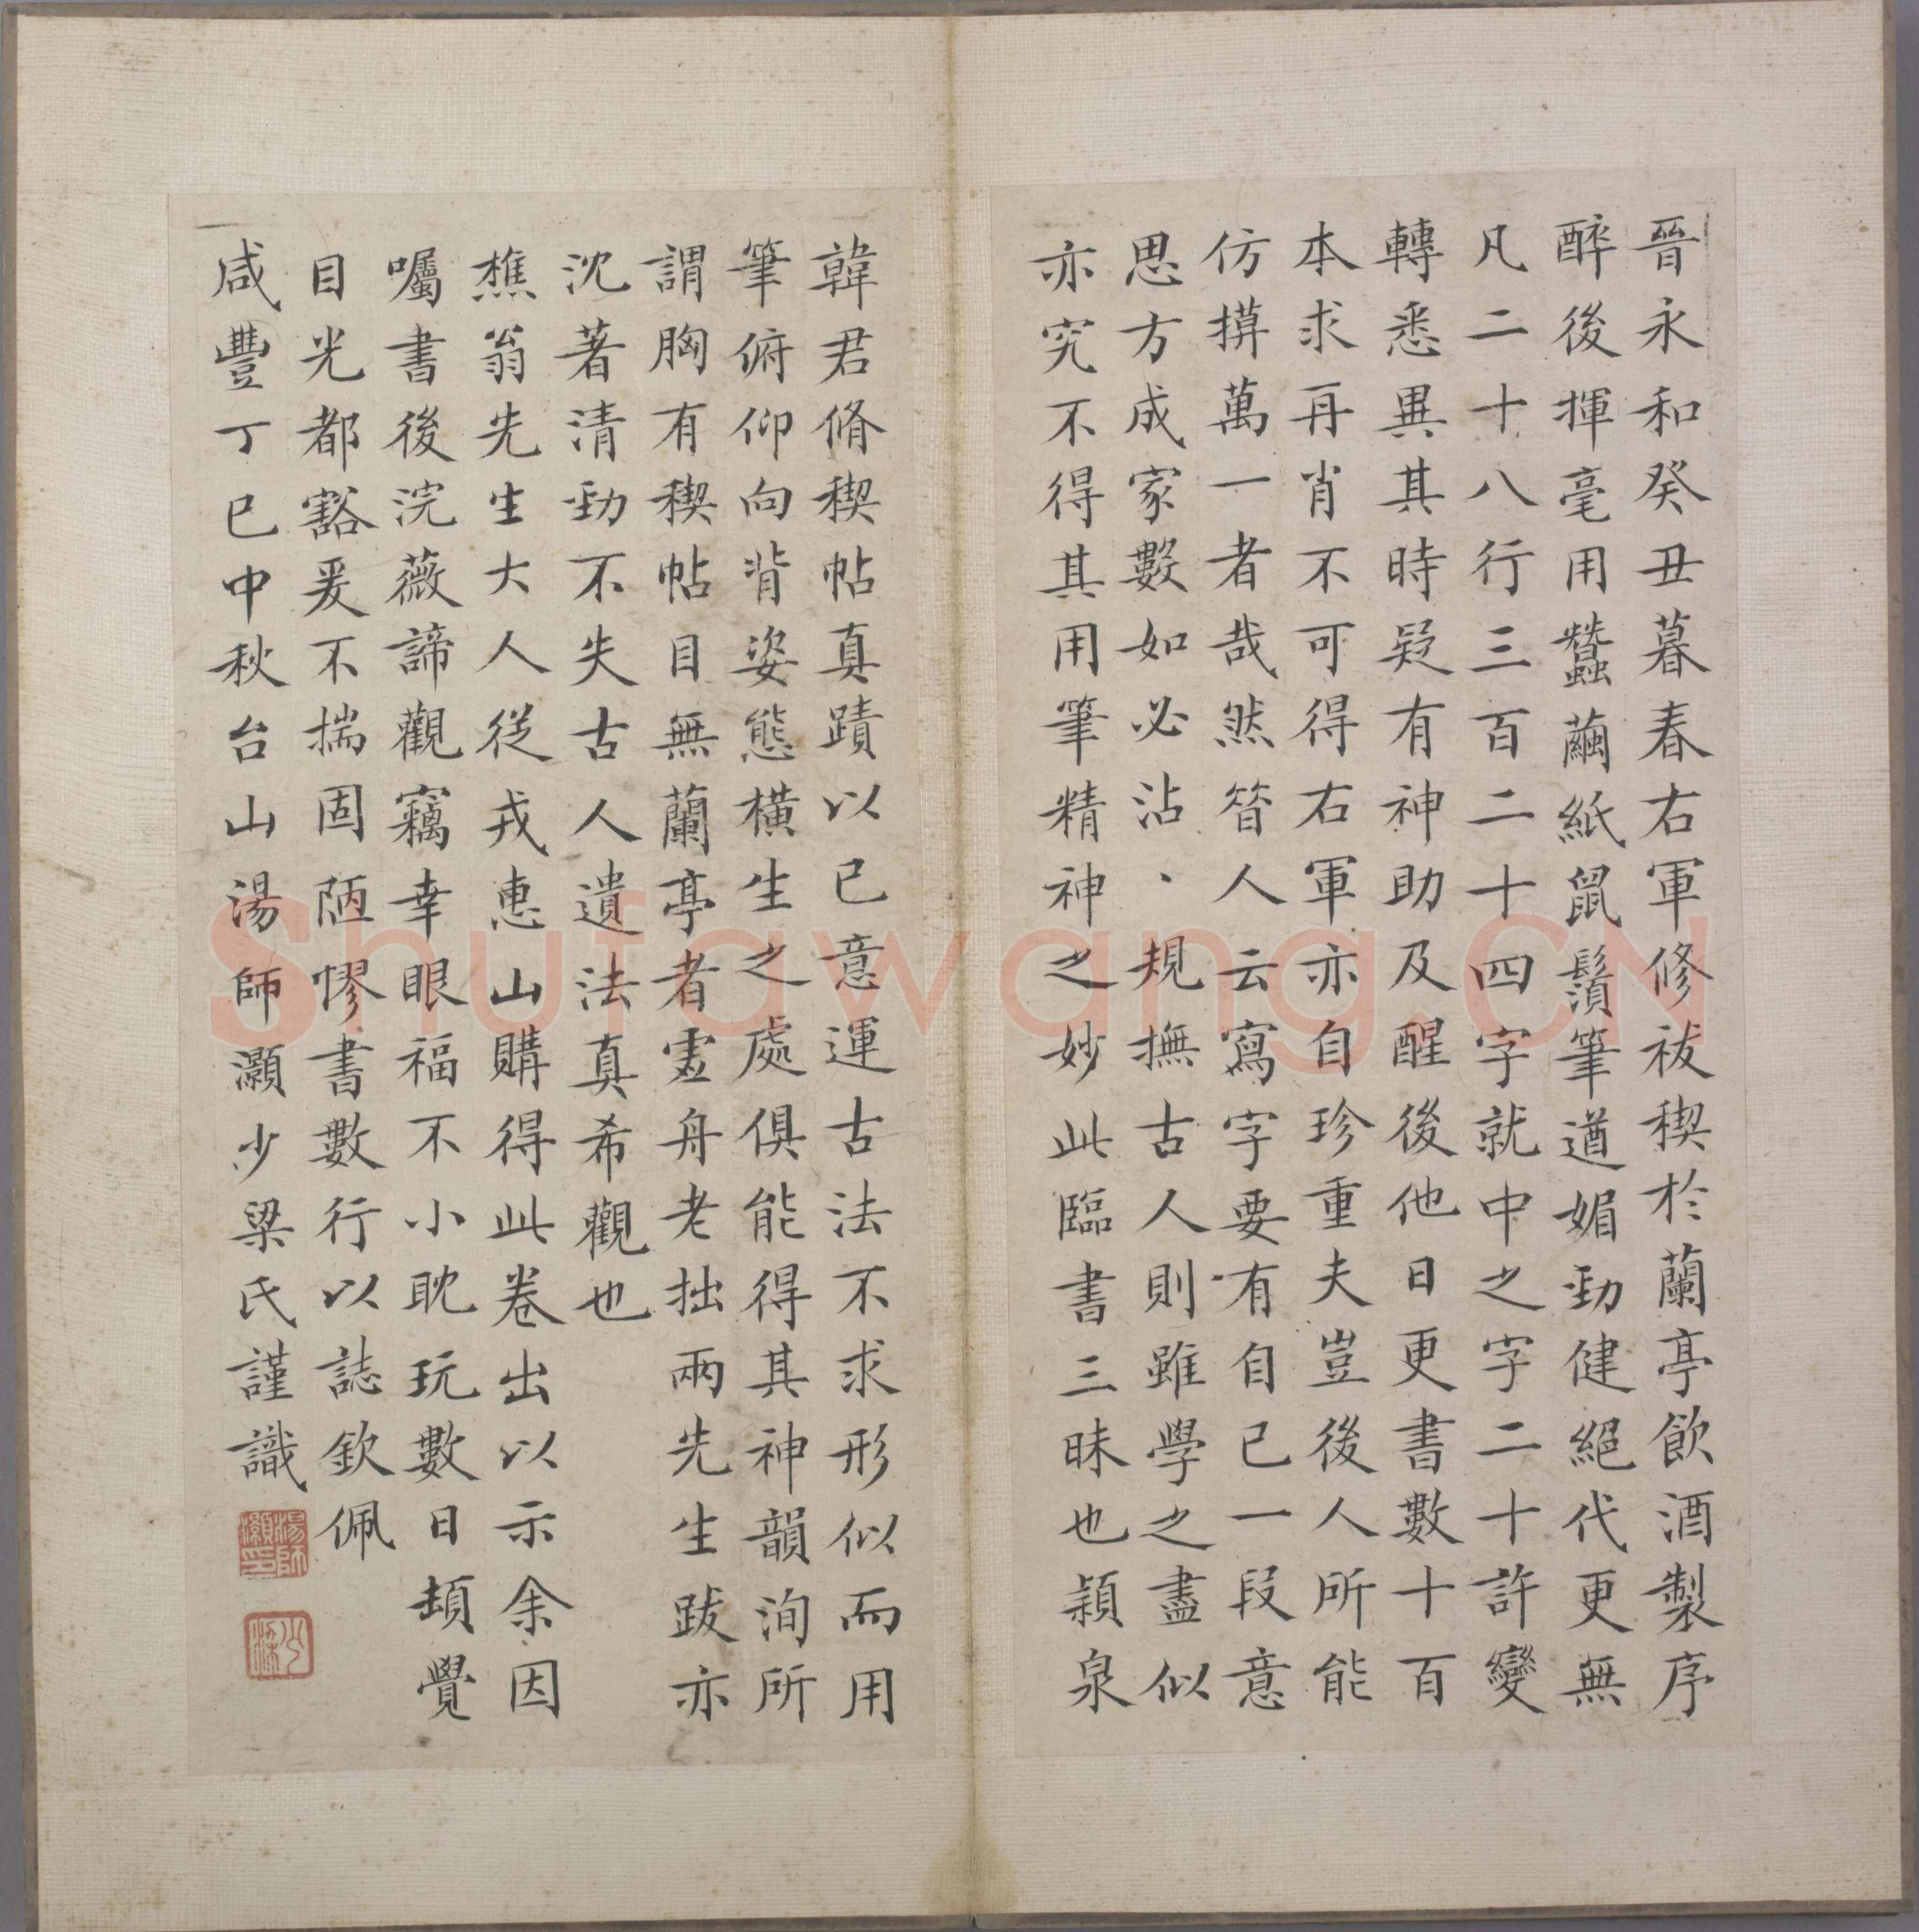 晉永和癸丑暮春右軍修祓稧於蘭亭飲酒製序
醉後揮毫用蠶繭紙鼠鬚筆遒媚勁健絕代更無
凡二十八行三百二十四字就中之字二十許變
轉悉異其時疑有神助及醒後他日更書數十百
本求再肖不可得右軍亦自珍重夫豈後人所能
仿摹萬一者哉然昔人云寫字要有自己一段意
思方成家數如必沾、規撫古人則雖學之盡似
亦究不得其用筆精神之妙此臨書三昧也穎泉
韓君脩稧帖真蹟以己意運古法不求形似而用
筆俯仰向背姿態橫生之處俱能得其神韻洵所
謂胸有稧帖目無蘭亭者虛舟老拙兩先生跋亦
沈著清勁不失古人遺法真希觀也
樵翁先生大人從戎惠山購得此卷出以示余因
囑書後浣薇諦觀竊幸眼福不小耽玩數日頓覺
目光都豁爰不揣固陋憀書數行以誌欽佩
咸豐丁巳中秋台山湯師灝少梁氏謹識
湯師灝印
少梁
Shufawang.CN